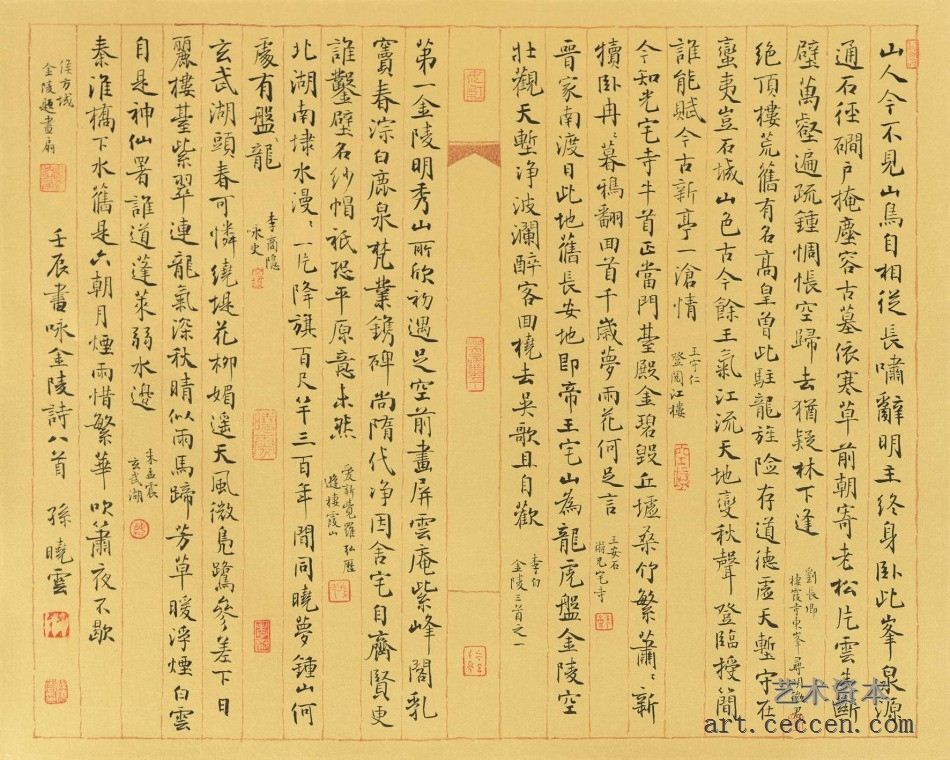 山人今不見山鳥自相從長嘯辭明主終身卧此峯泉源
通石徑磵戶掩塵容古墓依寒草前朝寄老松片雲生斷
壁萬壑遍疏鍾惆悵空歸去猶疑林下逢
劉長卿
棲霞寺東峯尋
絶頂樓荒舊有名高皇曾此駐龍旌險存道德虛天塹守在
蠻夷豈石城山色古今餘王氣江流天地變秋聲登臨授簡
誰能賦今古新亭一滄情
王守仁
登閱江樓
今知光宅寺牛首正當門臺殿金碧毀丘墟桑竹繁蕭〻新
犢卧冉〻暮鴉翻回首千歲夢雨花何足言
王安石
光宅寺
晉家南渡日此地舊長安地即帝王宅山為龍虎盤金陵空
壯觀天塹净波瀾醉客回橈去吳歌且自歡
李白
金陵三首之一
第一金陵明秀山所欣初遇足空前畫屏雲庵紫峰閣乳
竇春淙白鹿泉梵業鐫碑尚隋代净因舍宅自齊賢更
誰鑿壁名紗帽祇恐平原意未然
愛新覺羅弘曆
遊棲霞山
北湖南埭水漫〻一片降旗百尺竿三百年間同曉夢鍾山何
處有盤龍
李商隱
咏史
玄武湖頭春可憐繞堤花柳媚遥天風微鳧鷺參差下日
麗樓臺紫翠連龍氣深秋晴似雨馬蹄芳草暖浮煙白雲
自是神仙署誰道蓬萊弱水邊
朱孟震
玄武湖
秦淮橋下水舊是六朝月煙雨惜繁華吹簫夜不歇
侯方域
金陵題畫扇
壬辰書咏金陵詩八首 孫曉雲
艺术资本
art.ceccen.com